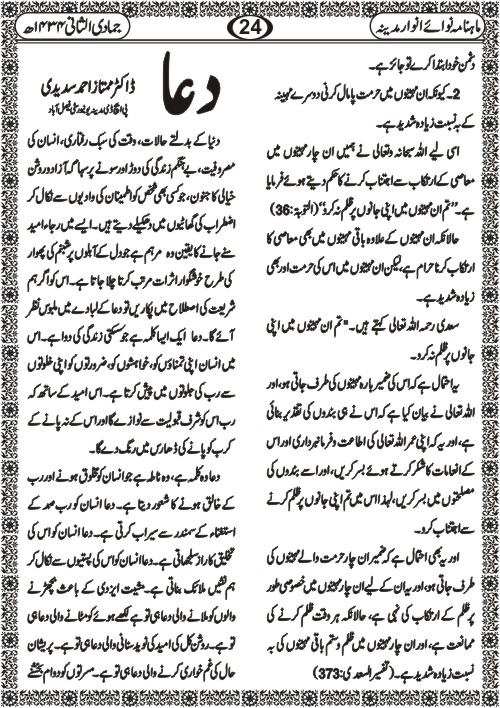 ماہنامہ نوائے انوار مدینہ
24
جمادی الثانی ۱۴۳۴ھ
دشمن خود ابتدا کرے تو جائز ہے۔
2۔ کیونکہ ان مہینوں میں حرمت پامال کرنی دوسرے مہینہ
کے بہ نسبت زیادہ شدید ہے۔
اسی لیے اللہ سبحانہ وتعالی نے ہمیں ان چار مہینوں میں
معاصی کے ارتکاب سے اجتناب کرنے کا حکم دیتے ہوئے فرمایا
ہے۔ ”تم ان مہینوں میں اپنی جانوں پر ظلم نہ کرو“ (التوبۃ:36)
حالانکہ ان مہینوں کے علاوہ باقی مہینوں میں بھی معاصی کا
ارتکاب کرنا حرام ہے، لیکن ان مہینوں میں اس کی حرمت اور بھی
زیادہ شدید ہے۔
سعدی رحمہ اللہ تعالی کہتے ہیں۔ "تم ان مہینوں میں اپنی
جانوں پر ظلم نہ کرو۔
یہ احتمال ہے کہ اس کی ضمیر بارہ مہینوں کی طرف جاتی ہو، اور
اللہ تعالی نے بیان کیا ہے کہ اس نے ہی بندوں کی تقدیر بنائی
ہے، اور یہ کہ اپنی عمر اللہ تعالی کی اطاعت و فرمانبرداری اور اس
کے انعامات کا شکر کرتے ہوئے بسر کریں، اور اسے بندوں کی
مصلحتوں میں بسر کریں، لہذا اس میں تم اپنی جانوں پر ظلم کرنے
سے اجتناب کرو۔
اور یہ بھی احتمال ہے کہ ضمیر ان چار حرمت والے مہینوں کی
طرف جاتی ہو، اور یہ ان کے لیے ان چار مہینوں میں خصوصی طور
پر ظلم کے ارتکاب کی نہی ہے، حالانکہ ہر وقت ظلم کرنے کی
ممانعت ہے، اور ان چار مہینوں میں ظلم و ستم باقی مہینوں کی بہ
نسبت زیادہ شدید ہے۔ (تفسیر السعدی:373)
دعا
ڈاکٹر ممتاز احمد سدیدی
پی ایچ ڈی مدینہ یونیورسٹی فیصل آباد
دنیا کے بدلتے حالات، وقت کی سبک رفتاری، انسان کی
مصروفیت، بے ہنگم زندگی کی دوڑ اور سونے پر سہاگہ آزاد و روشن
خیالی کا جنون، جو کسی بھی شخص کو اطمینان کی وادیوں سے نکال کر
اضطراب کی گھاٹیوں میں دھکیلے دیتے ہیں۔ ایسے میں رجاء، امید
سنے جانے کا یقین وہ مرہم ہے جو دل کے آبلوں پر شبنم کی پھوار
کی طرح خوشگوار اثرات مرتب کرتا چلا جاتا ہے۔ اس کو اگر ہم
شریعت کی اصطلاح میں پکاریں تو دعا کے لبادے میں ملبوس نظر
آئے گا۔ دعا ایک ایسا کلمہ ہے جو سسکتی زندگی کی دوا ہے۔ اس
میں انسان اپنی تمناؤں کو، خواہشوں کو، ضرورتوں کو اپنی خلوتوں
سے رب کی جلوتوں میں پیش کرتا ہے۔ اس امید کے ساتھ کہ
رب اس کو شرف قبولیت سے نوازے گا اور اس کے نہ پانے کے
کرب کو پانے کی ڈھارس میں رنگ دے گا۔
دعا وہ کلمہ ہے، وہ ناطہ ہے جو انسان کو مخلوق ہونے اور رب
کے خالق ہونے کا شعور دیتا ہے۔ دعا انسان کو رب صمد کے
استغناء کے سمندر سے سیراب کرتی ہے۔ دعا انسان کو اس کی
تخلیق کا راز سلجھاتی ہے۔ دعا انسان کو اس کی پستیوں سے نکال کر
ہم نشیں ملائک بناتی ہے۔ مشیت ایزدی کے باعث بچھڑنے
والوں کو ملانے والی دعا ہی تو ہے لکھے ہوئے کو مٹانے والی دعا ہی
تو ہے۔ روشن کل کی امید کی نوید سنانی والی دعا ہی تو ہے۔ پریشان
حال کی غم خواری کرنے والی دعا ہی تو ہے۔ مسرتوں کو دوام بخشنے